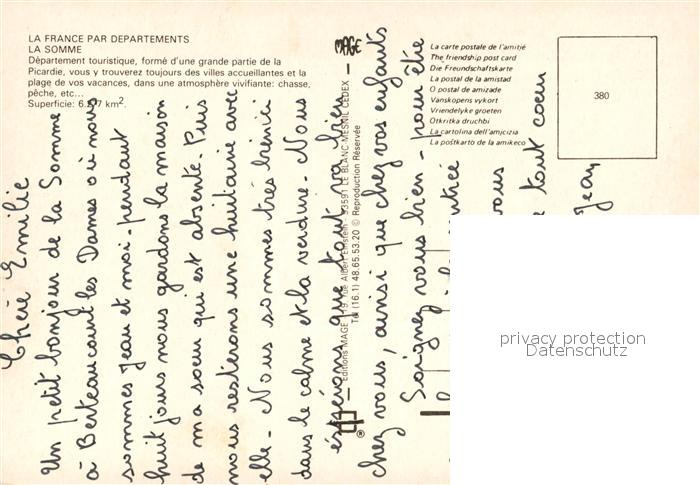 LA FRANCE PAR DEPARTEMENTS
LA SOMME
Département touristique, formé d'une grande partie de la
Picardie, vous y trouverez toujours des villes accueillantes et la
plage de vos vacances, dans une atmosphère vivifiante: chasse,
pêche, etc...
Superficie: km².
MAGE
La carte postale de l'amitié
The friendship post card
Die Freundschaftskarte
La postal de la amistad
O postal de amizade
Vanskopens vykort
Vriendelyke groeten
Otkritka druchbi
La cartolina dell'amicizia
La poŝtkarto de la amikeco
380
Editions MAGE - 19, rue Albert Einstein - 93591 LE BLANC MESNIL CEDEX
Tél (16.1) 48.65.53.20 © Reproduction Réservée
Chère Emilie
Un petit bonjour de la Somme
à Berteaucourt les Dames où nous
sommes Jean et moi - pendant
huit jours nous gardons la maison
de ma soeur qui est absente. Puis
nous resterons une huitaine avec
elle - Nous sommes très bien ici
dans le calme et la verdure - Nous
espérons que tout va bien
chez vous, ainsi que chez vos enfants
Soignez vous bien - pour être
vous
tout coeur
Jean
®
privacy protection
Datenschutz